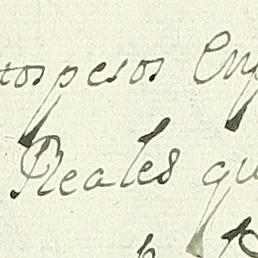 tos pesos En
Reales qu